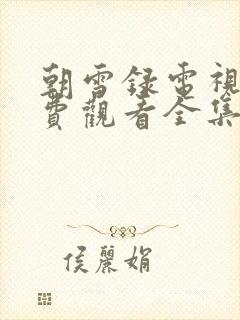 朝雪錄電視
費觀看全集
侯麗娟